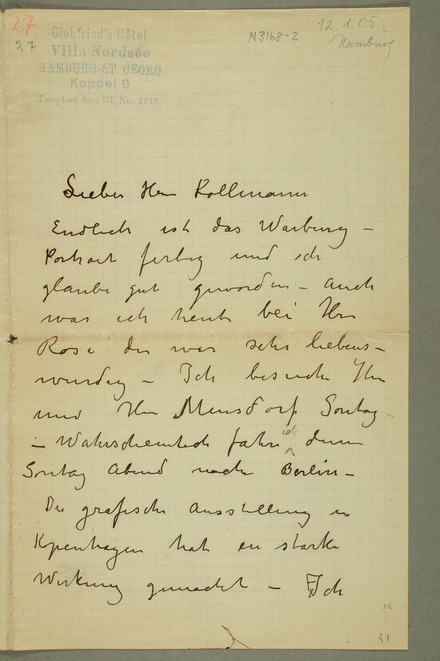 27
27
Giebfried's Hôtel
Villa Nordsee
HAMBURG-ST. GEORG
Koppel 9
Telephon Amt III, No. 1915.
N3168-2
12.1.05.
Hamburg
Lieber Herr Kollmann
Endlich ist das Warburg –
Portrait fertig und ich
glaube gut geworden – Auch
was ich heute bei Herr
Rose der war sehr liebens-
wurdig – Ich besuche Herr
und Herr Mensdorf Sontag
– Wahrscheinlich fahre ich denn
Sontag Abend nach Berlin –
Die grafische Ausstellung in
Kpenhagen hat en starke
Wirkung gemacht – Ich
31